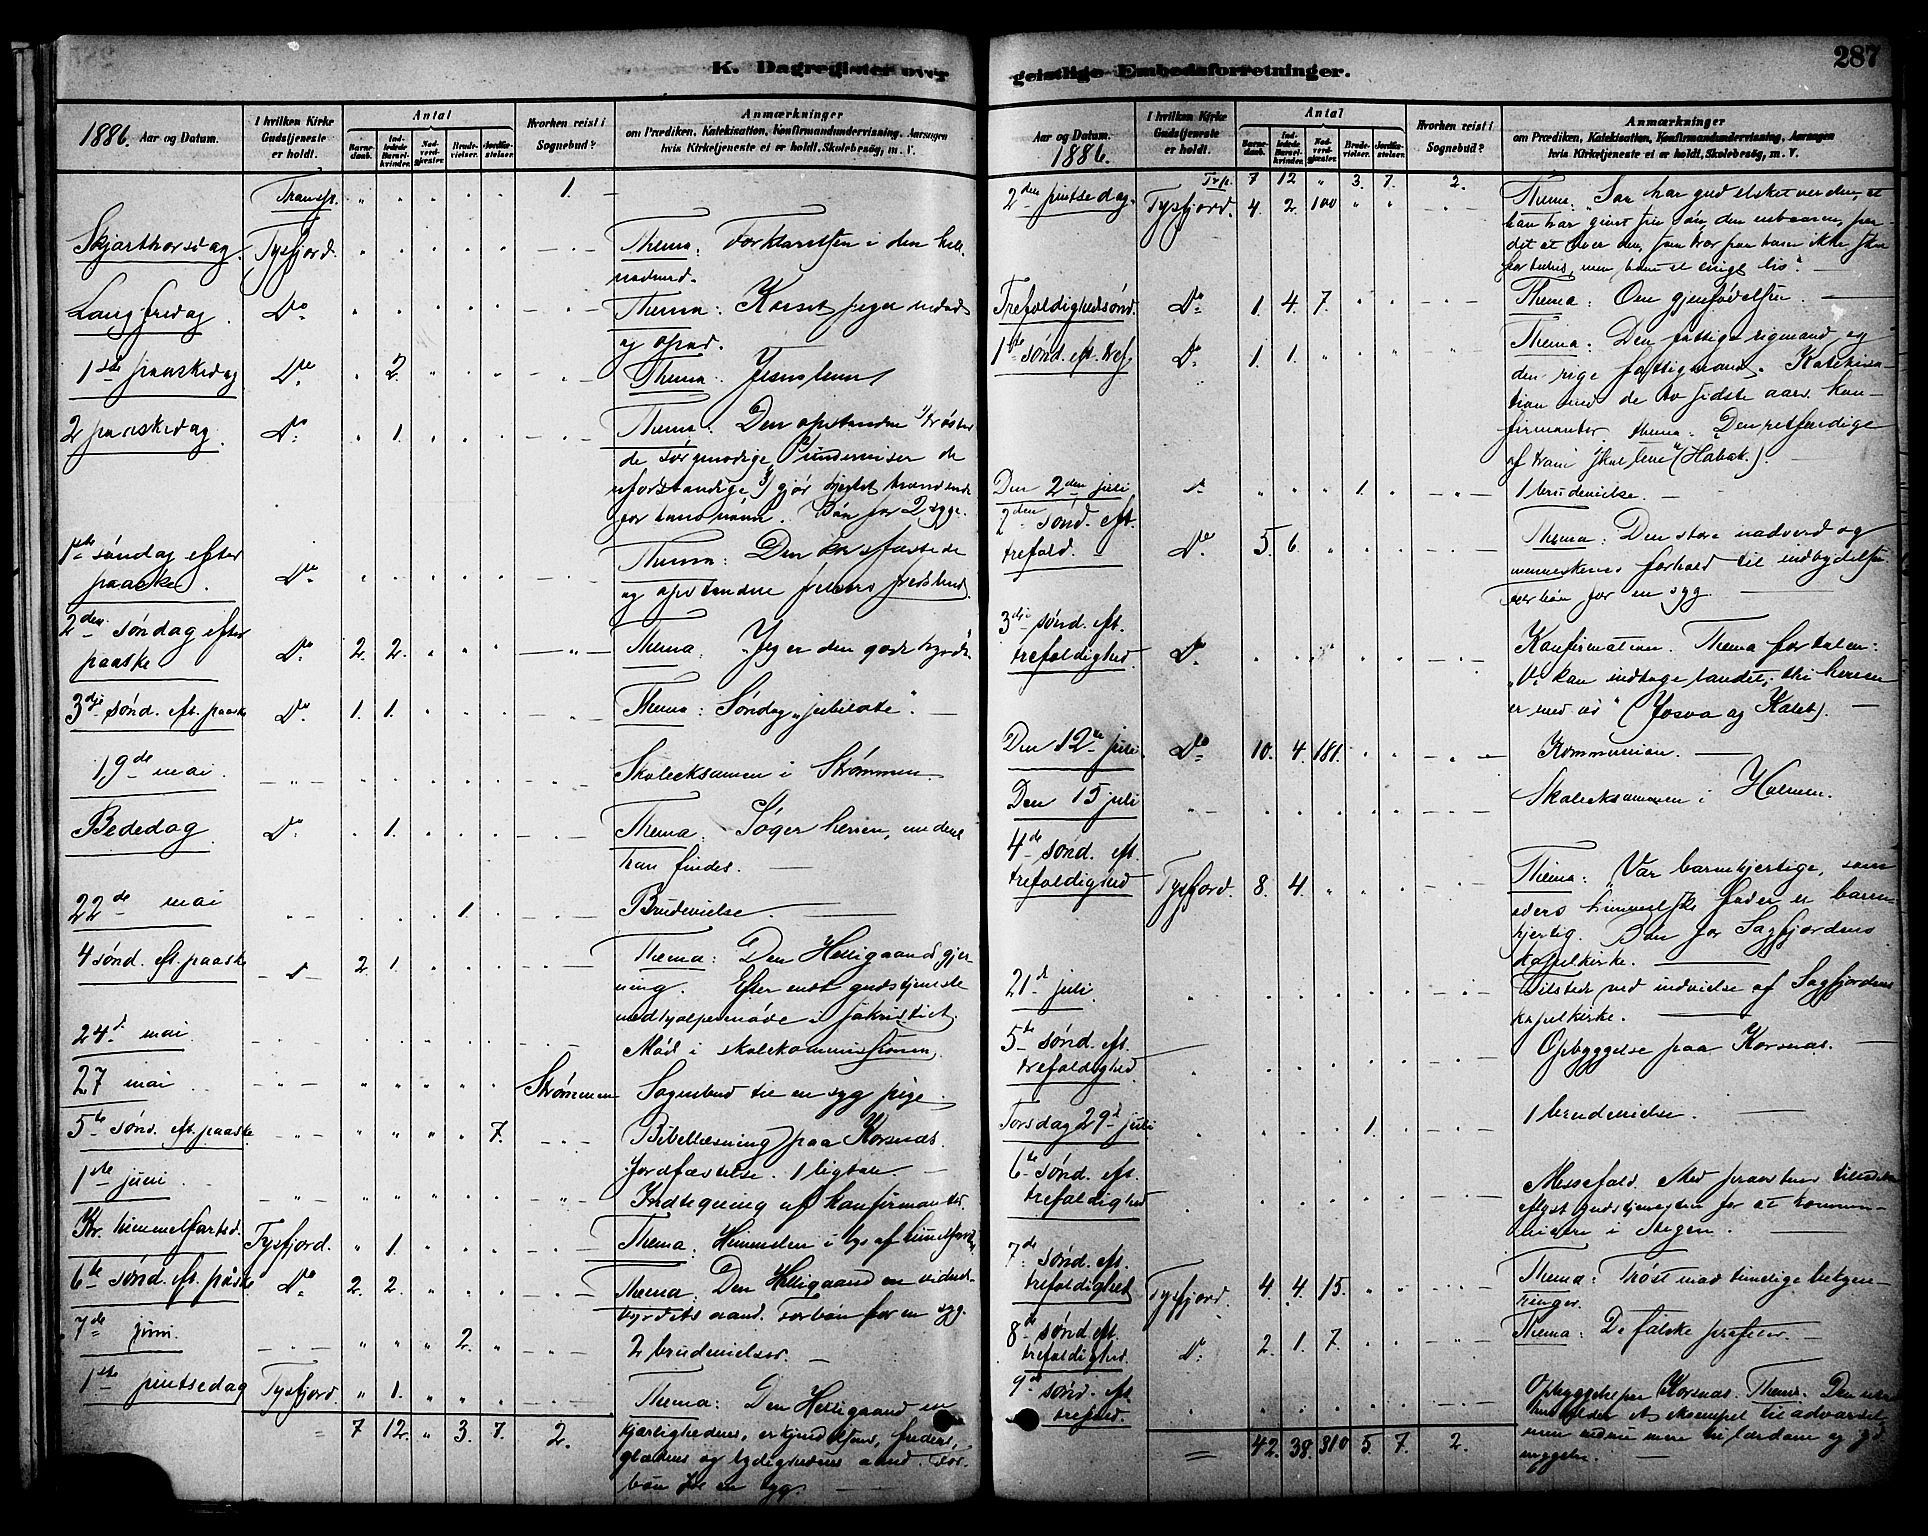 K. Dagregister over geistlige Embedsforretninger.
287
1886. Aar og Datum.
I hvilken Kirke Gudstjeneste er holdt.
Antal
Barnedaab.
Indledede Barselkvinder.
Nadverdgjester.
Brudevielser.
Jordfæstelser.
Hvorhen reist i Sognebud?
Anmærkninger
om Prædiken, Katekisation, Konfirmandundervisning, Aarsagen
hvis Kirketjeneste ei er holdt, Skolebesøg, m. V.
Transp. 1.
Skjærthorsdag. Tysfjord. Thema: Forklarelsen i den hel.
nadverd.
Langfredag. Do Thema: Korset peger nedad
og opad.
1ste paaskedag Do 2. Thema: Jesus lever
2 paaskedag Do 1. Thema: Den opstandne 1) trøster
de sørgmodige, 2) underviser de
uforstandige, 3) gjør hjertet brændende
for hans navn. Bøn for 2 syge.
1ste søndag efter
paaske. Do Thema: Den korsfæstede
og opstandne frelsers fredshilsen.
2den søndag efter
paaske Do 2. 2. Thema: "Jeg er den gode hyrde"
3dje sønd. eft. paaske Do 1. 1. Thema: Søndag "jubilate".
19de mai. Skoleeksamen i Strømmen
Bededag Do 1. Thema: Søger herren, medens
han findes.
22de mai 1. Brudevielse.
4 sønd. eft. paaske D 2. 1. Thema: Den Helligaands gjer-
ning. Efter endt gudstjeneste
medhjælpermøde i sakristiet.
24d mai Mød i skolekommissionen.
27 mai Strømmen Sognebud til en syg pige.
5te sønd. eft. paaske 7. Bibellæsning paa Korsnæs.
Jordfæstelse. 1 ligtale
1ste juni. Indtegning af konfirmanter.
Kr. himmelfartsd. Tysfjord. 1. Thema: Himmelen i lys af himmelfarten
6te sønd. eft. påske Do 2. 2. Thema: Den Helligaand en vidnes-
byrdets aand. Forbøn for en syg.
7de juni. 2. 2 brudevielser.
1ste pintsedag Tysfjord. 1. Thema: Den Helligaand en
kjærlighedens, erkjendelsens, fredens,
glædens og lydighedens aand. For-
bøn for en syg.
7 12. 3. 7. 2.
Aar og Datum. 1886.
I hvilken Kirke Gudstjeneste er holdt.
Antal
Barnedaab.
Indledede Barselkvinder.
Nadverdgjester.
Brudevielser.
Jordfæstelser.
Hvorhen reist i Sognebud?
Anmærkninger
om Prædiken, Katekisation, Konfirmandundervisning, Aarsagen
hvis Kirketjeneste ei er holdt, Skolebesøg, m. V.
Trp. 7 12 3. 7. 2.
2den pintsedag. Tysfjord. 4. 2. 100 Thema: "Saa har gud elsket verden, at
han har givet sin søn, den enbaarne, paa-
det at hver den, som tror paa ham ikke skal
fortabes, men have et evigt liv".
Trefoldighedssønd. Do 1. 4. 7. Thema: Om gjenfødelsen.
1ste sønd. eft. tref. Do 1. 1. Thema: Den fattige rigmand og
den rige fattigmand. Katekisa-
tion med de to sidste aars kon-
firmanter thema: "Den retfærdige
af troen skal leve" (Habak.).
Den 2den juli 1. 1 brudevielse.
2den sønd. eft.
trefold. Do 5. 6. Thema: Den store nadverd og
menneskenes forhold til indbydelsen.
Forbøn for en syg
3dje sønd. eft.
trefoldighed. Do Konfirmation. Thema for talen:
"Vi kan indtage landet, thi herren
er med os" (Josva og Kaleb).
Den 12te juli Do 10. 4. 181. Kommunion.
Den 15 juli Skoleeksamen i Holmen.
4de sønd. eft.
trefoldighed Tysfjord. 8. 4. Thema: "Vær barmhjertige, som
eders himmelske fader er barm-
hjertig. Bøn for Sagfjordens
kapelkirke.
21d juli. Tilsted ved indvielse af Sagfjordens
kapelkirke.
5te sønd. eft.
trefoldighed. Opbyggelse paa Korsnæs.
Torsdag 29d juli 1. 1 brudevielse.
6te sønd. eft.
trefoldighed Messefald. Med provstens tilladelse
aflyst gudstjenesten for at kommu-
nicere i Stegen.
7de sønd. eft.
trefoldighet Tysfjord. 4. 4. 15. Thema: Trøst mod timelige bekym-
ringer.
8de sønd. eft.
trefoldighed. D. 2. 1. 7. Thema: De falske profeter.
9de sønd. eft.
trefold. Opbyggelse paa Korsnæs. Thema: Den
husholder et eksempel til advarsel,
men endnu mere til lærdom og
42. 38. 310 5. 7. 2.